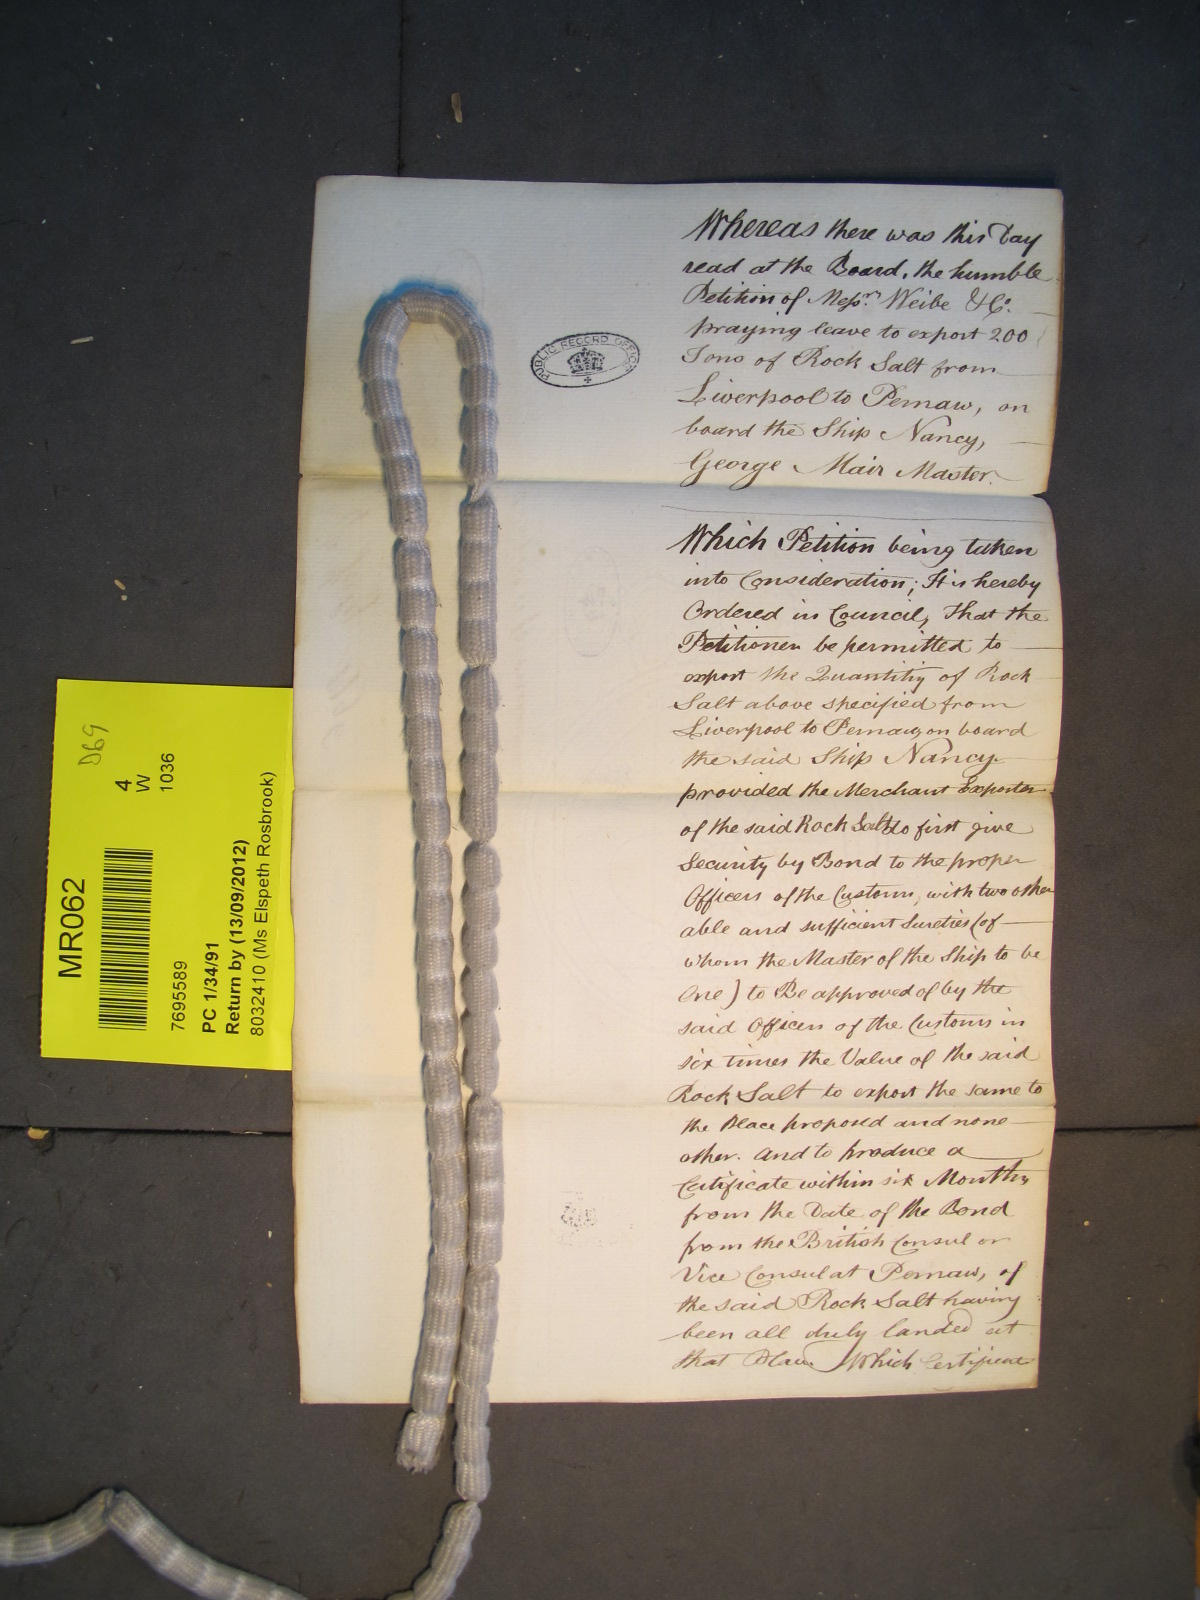 Whereas there was this Day
read at the Board, the humble
Petition of Messrs. Weibe & Co.
praying leave to export 200
Tons of Rock Salt from
Liverpool to Pernaw, on
board the Ship Nancy,
George Mair Master.
Which Petition being taken
into Consideration; It is hereby
Ordered in Council, that the
Petitioner be permitted to
export the Quantity of Rock
Salt above specified from
Liverpool to Pernaw, on board
the said Ship Nancy
provided the Merchant Exporter
of the said Rock Salt do first give
Security by Bond to the proper
Officers of the Customs, with two other
able and sufficient Sureties (of
whom the Master of the Ship to be
One) to Be approved of by the
said Officers of the Customs in
six times the Value of the said
Rock Salt to export the same to
the Place proposed and none
other. And to produce a
Certificate within six Months
from the Date of the Bond
from the British Consul or
Vice Consul at Pernaw, of
the said Rock Salt having
been all duly landed at
that Place Which Certificate
PUBLIC RECORD OFFICE
D69
4
W
1036
MR062
7695589
PC 1/34/91
Return by (13/09/2012)
8032410 (Ms Elspeth Rosbrook)